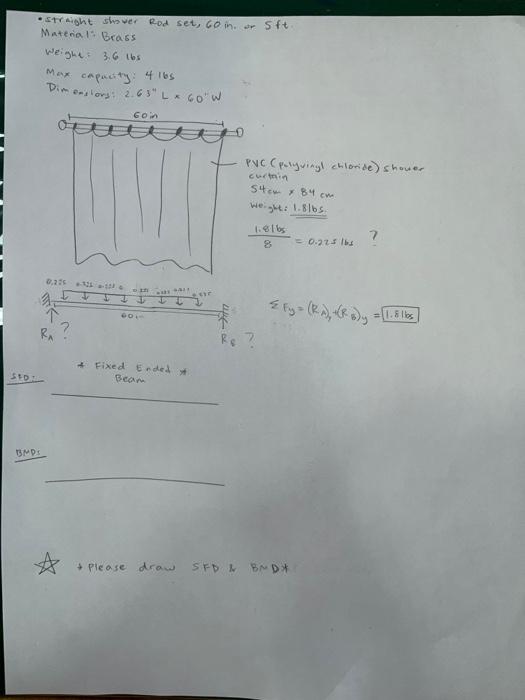 • straight shower Rod set, 60 in. or 5ft.
Material: Brass
Weight: 3.6 lbs
Max capacity: 4 lbs
Dimensions: 2.63" L x 60" W
60in
PVC (polyvinyl chloride) shower
curtain
54cm x 84 cm
Weight: 1.8lbs.
1.8lbs
8
= 0.225 lbs ?
0.225
60in
RA ?
RB ?
ΣFy = (RA)y + (RB)y = 1.8lbs
* Fixed Ended *
Beam
SFD:
BMD:
* Please draw SFD & BMD*